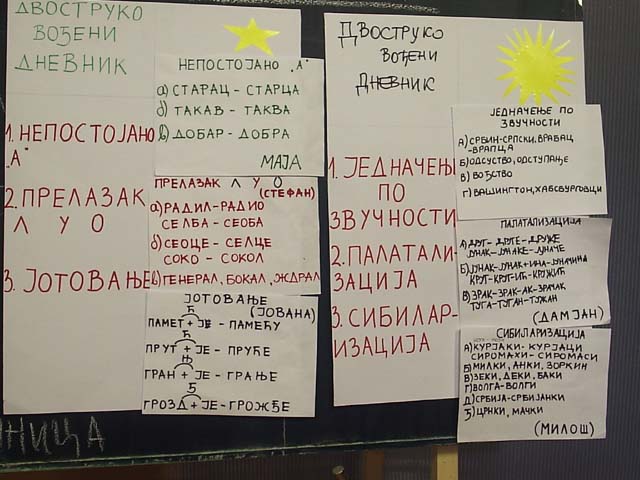 ДВОСТРУКО
ВОЂЕНИ
ДНЕВНИК
1. НЕПОСТОЈАНО
"А"
2. ПРЕЛАЗАК
Л У О
3. ЈОТОВАЊЕ
НЕПОСТОЈАНО „А"
а) СТАРАЦ - СТАРЦА
б) ТАКАВ - ТАКВА
в) ДОБАР - ДОБРА
МАЈА
ПРЕЛАЗАК Л У О
(СТЕФАН)
а) РАДИЛ - РАДИО
СЕЛБА - СЕОБА
б) СЕОЦЕ - СЕЛЦЕ
СОКО - СОКОЛ
в) ГЕНЕРАЛ, БОКАЛ, ЖДРАЛ
ЈОТОВАЊЕ
(ЈОВАНА)
Ћ
ПАМЕТ + ЈЕ - ПАМЕЋУ
Ћ
ПРУТ + ЈЕ - ПРУЋЕ
Њ
ГРАН + ЈЕ - ГРАЊЕ
Ђ
ГРОЗД + ЈЕ - ГРОЖЂЕ
ДВОСТРУКО
ВОЂЕНИ
ДНЕВНИК
1. ЈЕДНАЧЕЊЕ
ПО
ЗВУЧНОСТИ
2. ПАЛАТАЛИ-
ЗАЦИЈА
3. СИБИЛАР-
ИЗАЦИЈА
ЈЕДНАЧЕЊЕ ПО
ЗВУЧНОСТИ
А) СРБИН-СРПСКИ, ВРАБАЦ
-ВРАПЦА
Б) ОДСУСТВО, ОДСТУПАЊЕ
В) ВОЂСТВО
Г) ВАШИНГТОН, ХАБСБУРГОВЦИ
ПАЛАТАЛИЗАЦИЈА
А) ДРУГ - ДРУГЕ - ДРУЖЕ
ЈУНАК - ЈУНАКЕ - ЈУНАЧЕ
Б) ЈУНАК - ЈУНАК+ИНА - ЈУНАЧИНА
КРУГ - КРУГ-ИЋ - КРУЖИЋ
В) ЗРАК - ЗРАК-АК - ЗРАЧАК
ТУГА - ТУГАН - ТУЖАН
(ДАМЈАН)
СИБИЛАРИЗАЦИЈА
А) КУРЈАКИ - КУРЈАЦИ
СИРОМАХИ - СИРОМАСИ
Б) МИЛКИ, АНКИ, ЗОРКИН
В) ЗЕКИ, ДЕКИ, БАКИ
Г) ВОЛГА - ВОЛГИ
Д) СРБИЈА - СРБИЈАНКИ
Ђ) ЦРНКИ, МАЧКИ
(МИЛОШ)
НИЦА